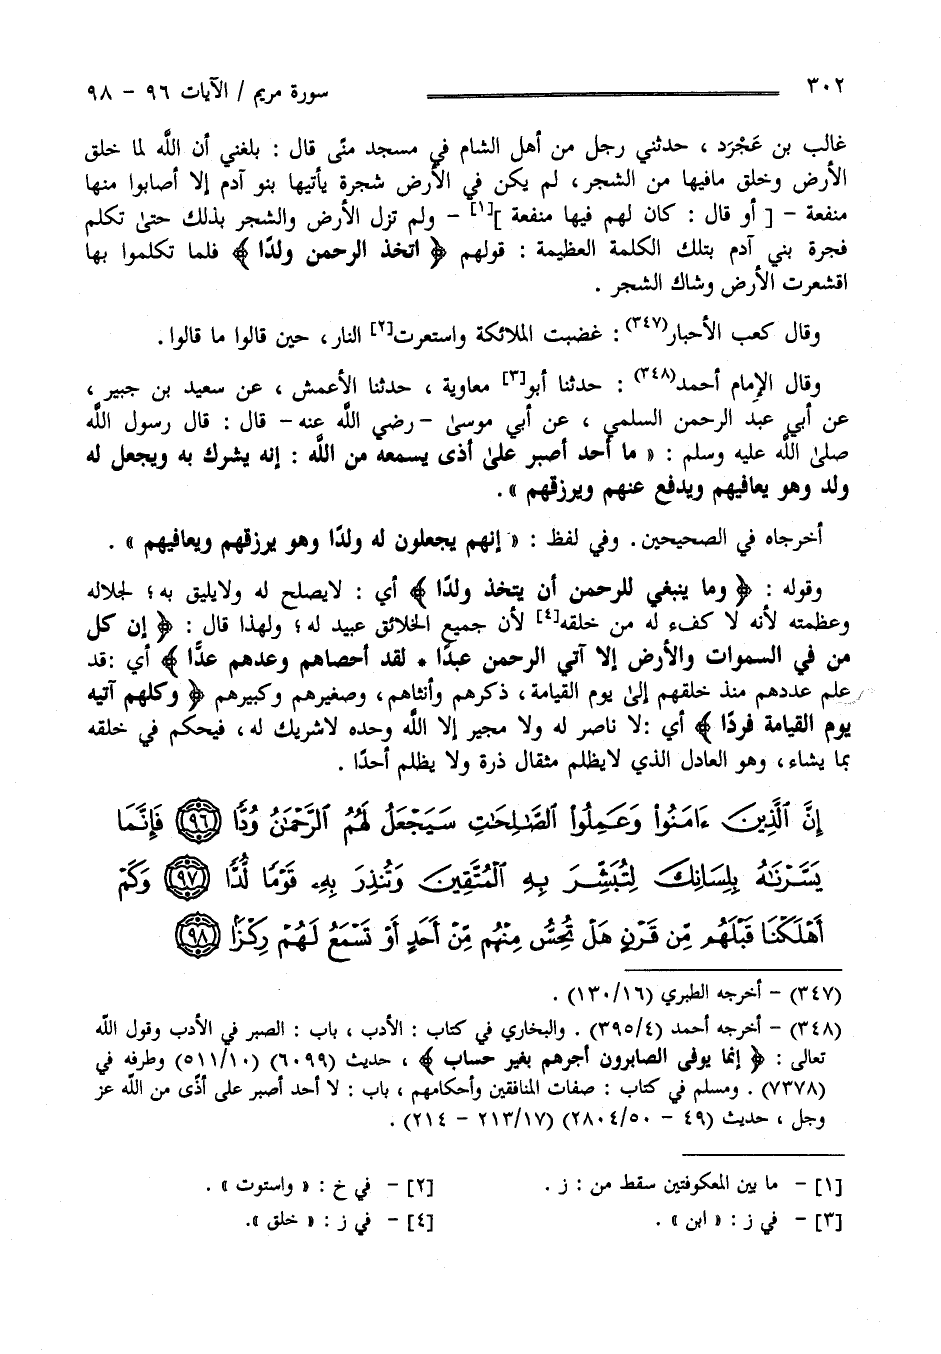 ٣٠٢
سورة مريم / الآيات ٩٦ - ٩٨
غالب بن عَجْرَد ، حدثني رجل من أهل الشام في مسجد منًى قال : بلغني أن اللَّه لما خلق
الأرض وخلق مافيها من الشجر ، لم يكن في الأرض شجرة يأتيها بنو آدم إلا أصابوا منها
منفعة - [ أو قال : كان لهم فيها منفعة ][١] - ولم تزل الأرض والشجر بذلك حتىٰ تكلم
فجرة بني آدم بتلك الكلمة العظيمة : قولهم ﴿ اتخذ الرحمن ولدًا ﴾ فلما تكلموا بها
اقشعرت الأرض وشاك الشجر .
وقال كعب الأحبار(٣٤٧) : غضبت الملائكة واستعرت[٢] النار، حين قالوا ما قالوا.
وقال الإمام أحمد(٣٤٨) : حدثنا أبو[٣] معاوية ، حدثنا الأعمش ، عن سعيد بن جبير ،
عن أبي عبد الرحمن السلمي ، عن أبي موسىٰ -رضي اللَّه عنه- قال : قال رسول اللَّه
صلىٰ اللَّه عليه وسلم : « ما أحد أصبر علىٰ أذى يسمعه من اللَّه : إنه يشرك به ويجعل له
ولد وهو يعافيهم ويدفع عنهم ويرزقهم ».
أخرجاه في الصحيحين. وفي لفظ : « إنهم يجعلون له ولدًا وهو يرزقهم ويعافيهم » .
وقوله : ﴿ وما ينبغي للرحمن أن يتخذ ولدًا ﴾ أي : لايصلح له ولايليق به؛ لجلاله
وعظمته لأنه لا كفء له من خلقه[٤] لأن جميع الخلائق عبيد له؛ ولهذا قال : ﴿ إن كل
من في السموات والأرض إلا آتي الرحمن عبدًا * لقد أحصاهم وعدهم عدًّا ﴾ أي :قد
علم عددهم منذ خلقهم إلىٰ يوم القيامة، ذكرهم وأنثاهم، وصغيرهم وكبيرهم ﴿ وكلهم آتيه
يوم القيامة فردًا ﴾ أي :لا ناصر له ولا مجير إلا اللَّه وحده لاشريك له، فيحكم في خلقه
بما يشاء، وهو العادل الذي لايظلم مثقال ذرة ولا يظلم أحدًا .
إِنَّ ٱلَّذِينَ ءَامَنُوا۟ وَعَمِلُوا۟ ٱلصَّـٰلِحَـٰتِ سَيَجْعَلُ لَهُمُ ٱلرَّحْمَـٰنُ وُدًّا ٩٦ فَإِنَّمَا
يَسَّرْنَـٰهُ بِلِسَانِكَ لِتُبَشِّرَ بِهِ ٱلْمُتَّقِينَ وَتُنذِرَ بِهِۦ قَوْمًا لُّدًّا ٩٧ وَكَمْ
أَهْلَكْنَا قَبْلَهُم مِّن قَرْنٍ هَلْ تُحِسُّ مِنْهُم مِّنْ أَحَدٍ أَوْ تَسْمَعُ لَهُمْ رِكْزًا ٩٨
(٣٤٧) - أخرجه الطبري (١٣٠/١٦) .
(٣٤٨) - أخرجه أحمد (٣٩٥/٤) . والبخاري في كتاب : الأدب ، باب : الصبر في الأدب وقول اللَّه
تعالى : ﴿ إنما يوفى الصابرون أجرهم بغير حساب ﴾ ، حديث (٦٠٩٩) (٥١١/١٠) وطرفه في
(٧٣٧٨) . ومسلم في كتاب : صفات المنافقين وأحكامهم ، باب : لا أحد أصبر على أذًى من اللَّه عز
وجل ، حديث (٤٩ - ٢٨٠٤/٥٠) (٢١٣/١٧ - ٢١٤) .
[١] - ما بين المعكوفتين سقط من : ز . [٢] - في خ : « واستوت » .
[٣] - في ز : « ابن » . [٤] - في ز : « خلق ».